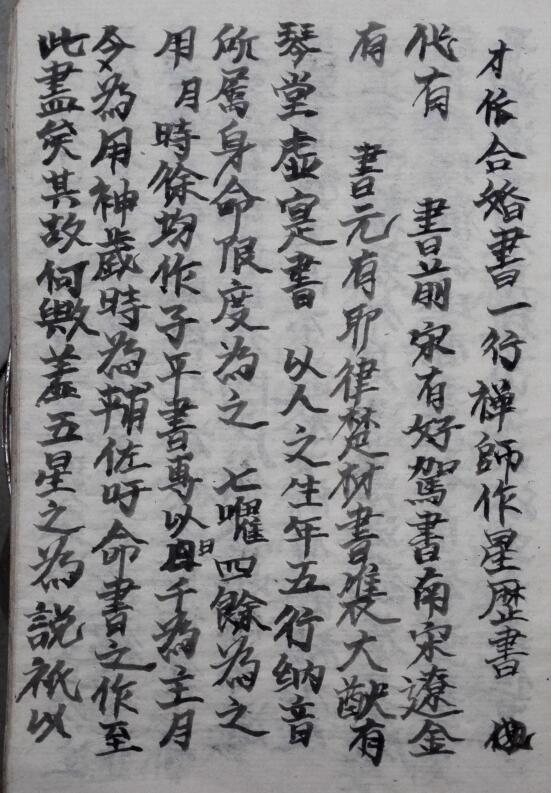 才作合婚書一行禅師作星歷書
代有 書前宋有好駕書南宋遼金
有 書元有耶律楚材書裴大猷有
琴堂虛寔書 以人之生年五行納音
所属身命限度為之 七曜四餘為之
用月時餘均作子平書專以日干為主月
令為用神歲時為輔佐吁命書之作至
此盡矣其故何歟盖五星之為說祇以